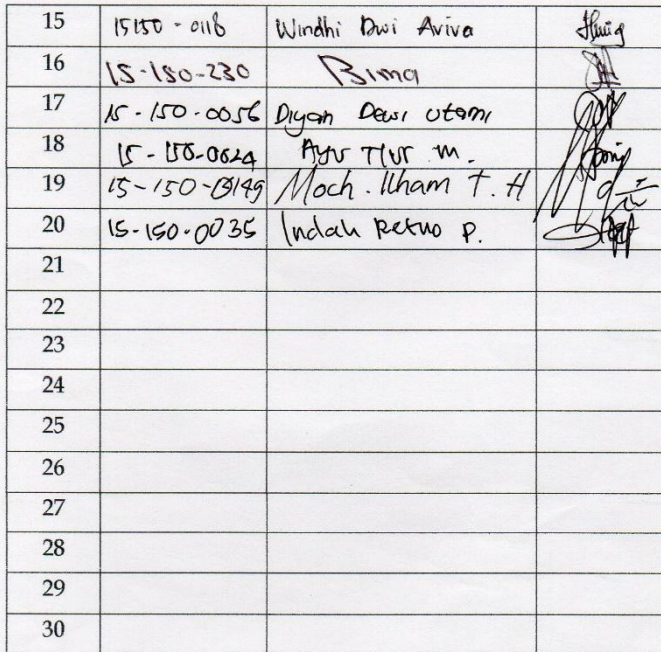 15 15150-0118 Windhi Dwi Aviva
16 15-150-230 Bima
17 15-150-0056 Diyan Dewi Utami
18 15-150-0024 Ayu Tiur M.
19 15-150-0149 Moch. Ilham T. H
20 15-150-0035 Indah Retno P.
21
22
23
24
25
26
27
28
29
30